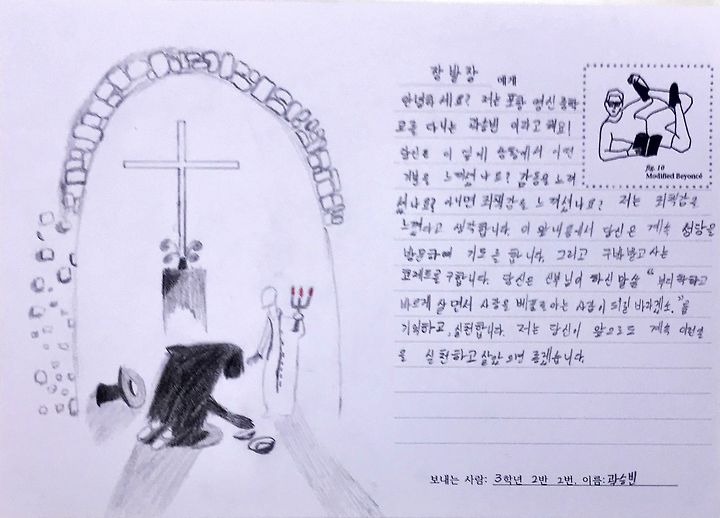 장발장 에게
안녕하세요? 저는 포항 영신 중학
교를 다니는 곽승빈 이라고 해요!
당신은 이 일에 상황에서 어떤
기분을 느꼈었나요? 감동을 느껴
셨나요? 아니면 죄책감을 느꼈었나요? 저는 죄책감을
느꼈다고 생각합니다. 이 왼쪽 내용에서 당신은 계속 성당을
방문하며 기도를 합니다. 그리고 구박받고 사는
코제트를 구합니다. 당신은 신부님이 하신 말씀 " 부디 착하고
바르게 살면서 사랑을 베풀 줄 아는 사람이 되길 바라겠소."를
기억하고, 실천합니다. 저는 당신이 앞으로도 계속 이런일
을 실천하고 살았으면 좋겠습니다.
fig. 10
Modified Beyoncé
보내는 사람: 3학년 2반 2번, 이름: 곽승빈